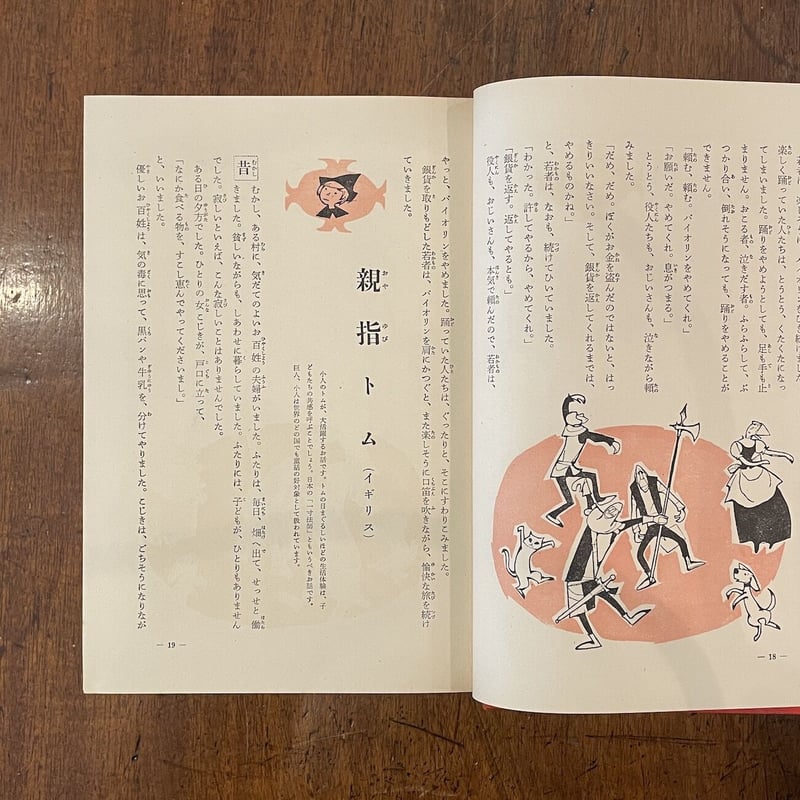 楽しく踊っていた人たちは、とうとう、くたくたになっ
てしまいました。踊りをやめようとしても、足も手も止
まりません。おこる者、泣きだす者。ふらふらして、ぶ
つかり合い、倒れそうになっても、踊りをやめることが
できません。
「頼む、頼む。バイオリンをやめてくれ。」
「お願いだ。やめてくれ。息がつまる。」
とうとう、役人たちも、おじいさんも、泣きながら頼
みました。
「だめ、だめ。ぼくがお金を盗んだのではないと、はっ
きりいいなさい。そして、銀貨を返してくれるまでは、
やめるものかね。」
と、若者は、なおも、続けてひいていました。
「わかった。許してやるから、やめてくれ。」
「銀貨を返す。返してやるとも。」
役人も、おじいさんも、本気で頼んだので、若者は、
— 18 —
やっと、バイオリンをやめました。踊っていた人たちは、ぐったりと、そこにすわりこみました。
銀貨を取りもどした若者は、バイオリンを肩にかつぐと、また楽しそうに口笛を吹きながら、愉快な旅を続け
ていきました。
親指トム(イギリス)
小人のトムが、大活躍するお話です。トムの目まぐるしいほどの生活体験は、子
どもたちの共感を呼ぶことでしょう。日本の「一寸法師」ともいうべきお話です。
巨人、小人は世界のどの国でも童話の好対象として扱われています。
昔 むかし、ある村に、気だてのよいお百姓の夫婦がいました。ふたりは、毎日、畑へ出て、せっせと働
きました。貧しいながらも、しあわせに暮らしていました。ふたりには、子どもが、ひとりもありません
でした。寂しいといえば、こんな寂しいことはありませんでした。
ある日の夕方でした。ひとりの女こじきが、戸口に立って、
「なにか食べる物を、すこし恵んでやってくださいまし。」
と、いいました。
優しいお百姓は、気の毒に思って、黒パンや牛乳を、分けてやりました。こじきは、ごちそうになりなが
— 19 —